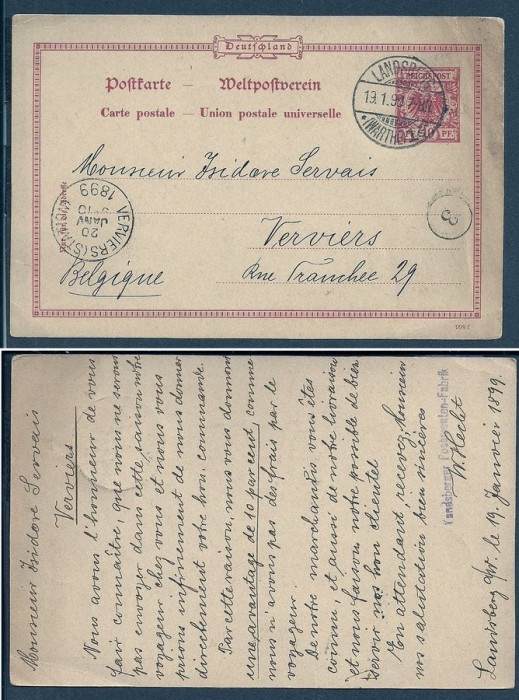 Deutschland
Postkarte — Weltpostverein
Carte postale — Union postale universelle
REICHSPOST
10 PF.
LANDSBERG
19.1.99
(WARTHE)
Monsieur Isidore Servais
Verviers
Belgique
Rue Tranchee 29
VERVIERS (STATION)
20
JANV
1899
3
Monsieur Isidore Servais
Verviers
Nous avons l'honneur de vous
fair connaître, que nous ne serons
pas envoyer dans cette saison notre
voyageur chez vous et nous vous
prions infiniement de nous donner
directement votre hon. commande.
Par cette raison, nous vous donnons
une avantage de 10 par cent, comme
nous n'avons pas des frais par le
voyageur.
De notre marchandis vous êtes
connu, et aussi de notre livraison
et nous faison notre posible de bien
servir nos bon clientel
En attendant recevez Monsieur
nos salutation bien sincères
Landsberger Posamenten-Fabrik
W. Hecht
Landsberg a/W. le 19 Janvier 1899.